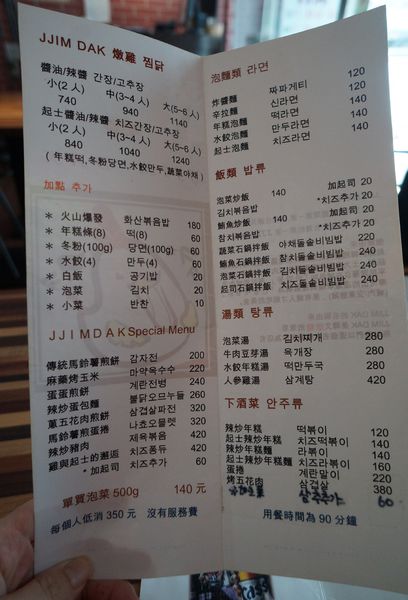 JJIM DAK 燉雞 찜닭
醬油/辣醬 간장/고추장
小(2 人) 中(3~4 人) 大(5~6 人)
740 940 1140
起士醬油/辣醬 치즈간장/고추장
小(2 人) 中(3~4 人) 大(5~6 人)
840 1040 1240
(年糕떡,冬粉당면,水餃만두,蔬菜야채)
加點 추가
* 火山爆發 화산볶음밥 180
* 年糕條(8) 떡(8) 60
* 冬粉(100g) 당면(100g) 60
* 水餃(4) 만두(4) 60
* 白飯 공기밥 20
* 泡菜 김치 20
* 小菜 반찬 10
JJIMDAK Special Menu
傳統馬鈴薯煎餅 감자전 200
麻藥烤玉米 마약옥수수 220
蛋蛋煎餅 계란전병 240
辣炒蛋包麵 불닭오므누들 260
蔥五花肉煎餅 삼겹살파전 320
馬鈴薯煎蛋捲 나초오믈렛 320
辣炒豬肉 제육볶음 420
雞與起士的邂逅 치즈퐁듀 420
* 加起司 치즈추가 60
單買泡菜 500g 140 元
每個人低消 350 元 沒有服務費
泡麵類 라면
炸醬麵 짜파게티 120
辛拉麵 신라면 120
年糕泡麵 떡라면 140
水餃泡麵 만두라면 140
起士泡麵 치즈라면 140
飯類 밥류
泡菜炒飯 140 加起司 20
김치볶음밥 *치즈추가 20
鮪魚炒飯 140 加起司 20
참치볶음밥 *치즈추가 20
蔬菜石鍋拌飯 야채돌솥비빔밥 220
鮪魚石鍋拌飯 참치돌솥비빔밥 240
泡菜石鍋拌飯 김치돌솥비빔밥 240
起司石鍋拌飯 치즈돌솥비빔밥 240
湯類 탕류
泡菜湯 김치찌개 280
牛肉豆芽湯 육개장 280
水餃年糕湯 떡만두국 280
人參雞湯 삼계탕 420
下酒菜 안주류
辣炒年糕 떡볶이 120
起士辣炒年糕 치즈떡볶이 140
辣炒年糕麵 라볶이 140
起士辣炒年糕麵 치즈라볶이 160
蛋捲 계란말이 220
烤五花肉 삼겹살 380
加生菜 상추추가 60
用餐時間為 90 分鐘